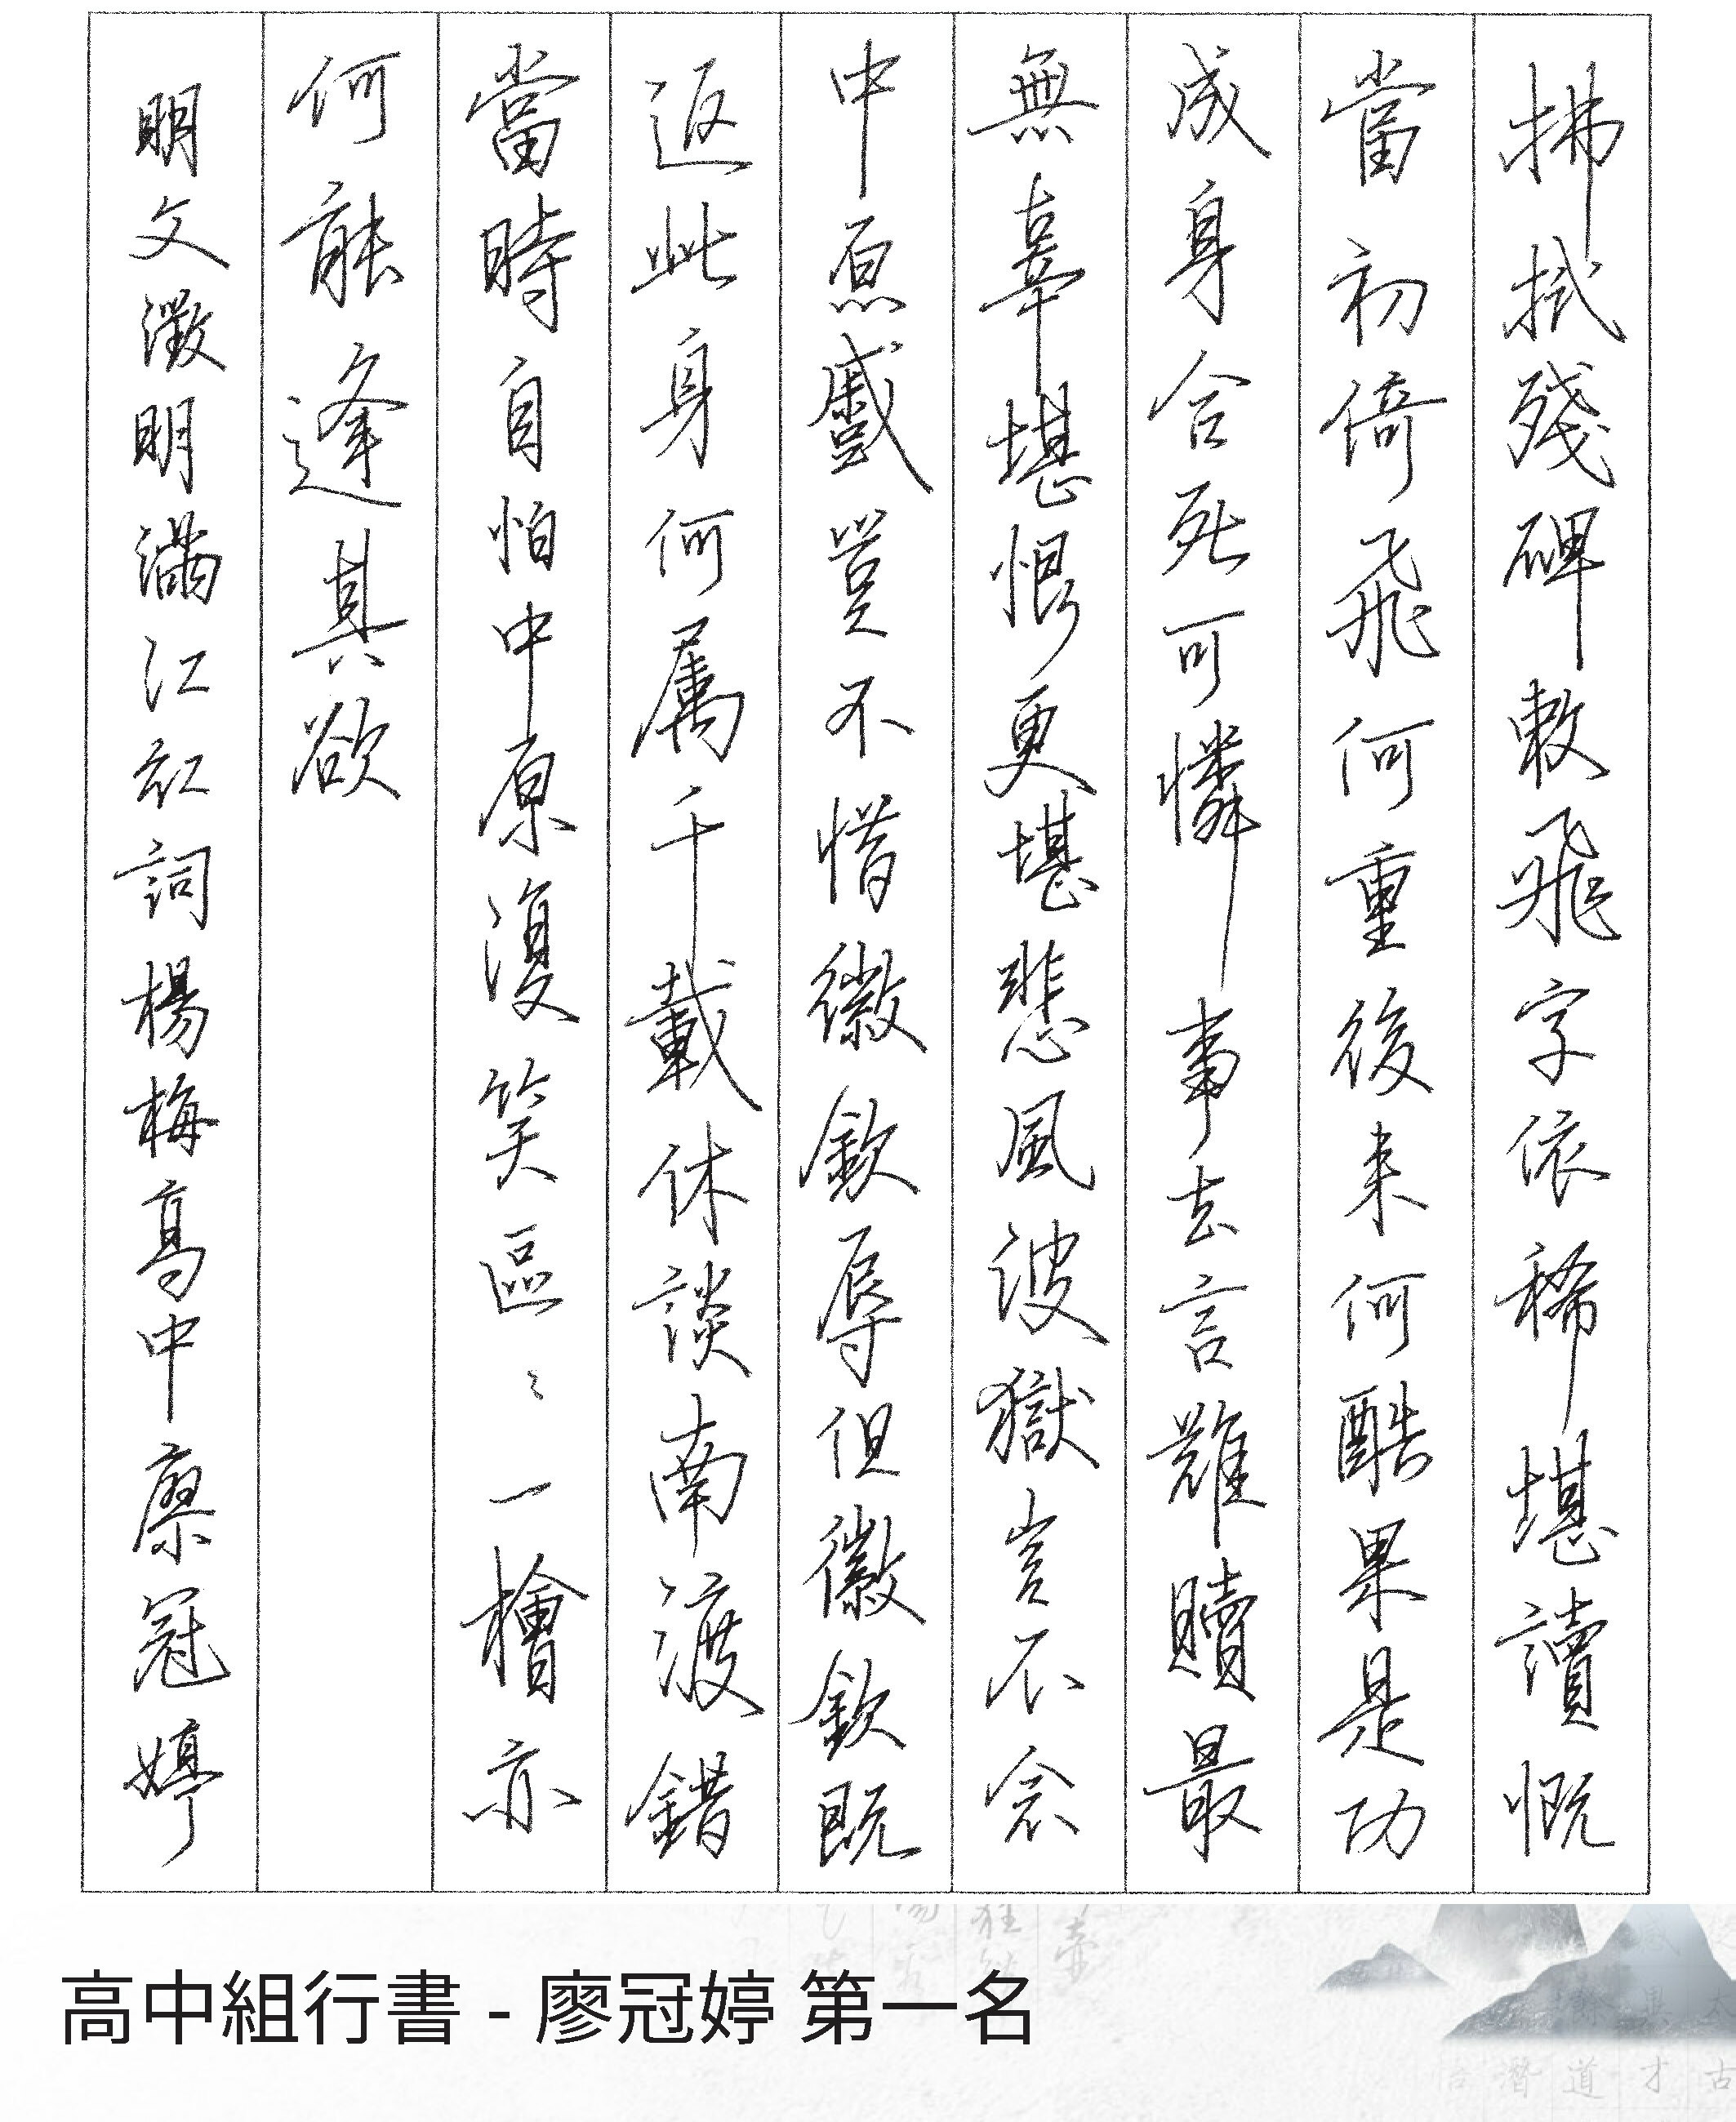 拂拭殘碑敕飛字依稀堪讀慨
當初倚飛何重後来何酷果是功
成身合死可憐事去言難贖最
無辜堪恨更堪悲風波獄豈不念
中原蹙豈不惜徽欽辱但徽欽既
返此身何屬千載休談南渡錯
當時自怕中原復笑區々一檜亦
何能逢其欲
明文徵明滿江紅詞楊梅高中廖冠婷
高中組行書 - 廖冠婷 第一名